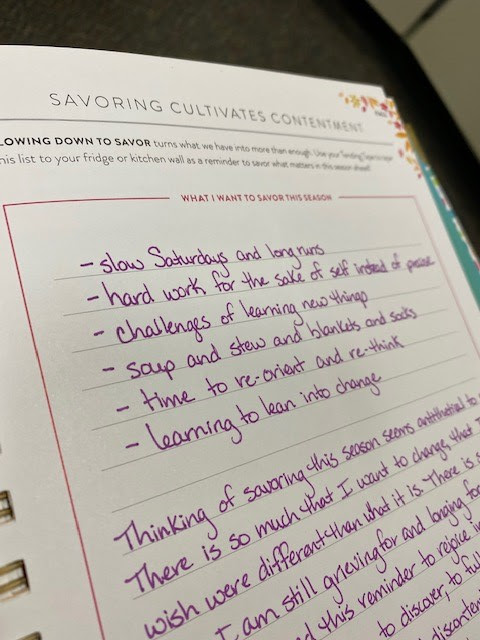 SAVORING CULTIVATES CONTENTMENT
LOWING DOWN TO SAVOR turns what we have into more than enough. Use your Tending Tape to tape
his list to your fridge or kitchen wall as a reminder to savor what matters in this season ahead!
WHAT I WANT TO SAVOR THIS SEASON
- slow Saturdays and long runs
- hard work for the sake of self instead of praise
- challenges of learning new things
- soup and stew and blankets and socks
- time to re-orient and re-think
- learning to lean into change
Thinking of savoring this season seems antithetical to
There is so much that I want to change, that I
wish were different than what it is. There is
I am still grieving for and longing for
this reminder to rejoice in
to discover, to